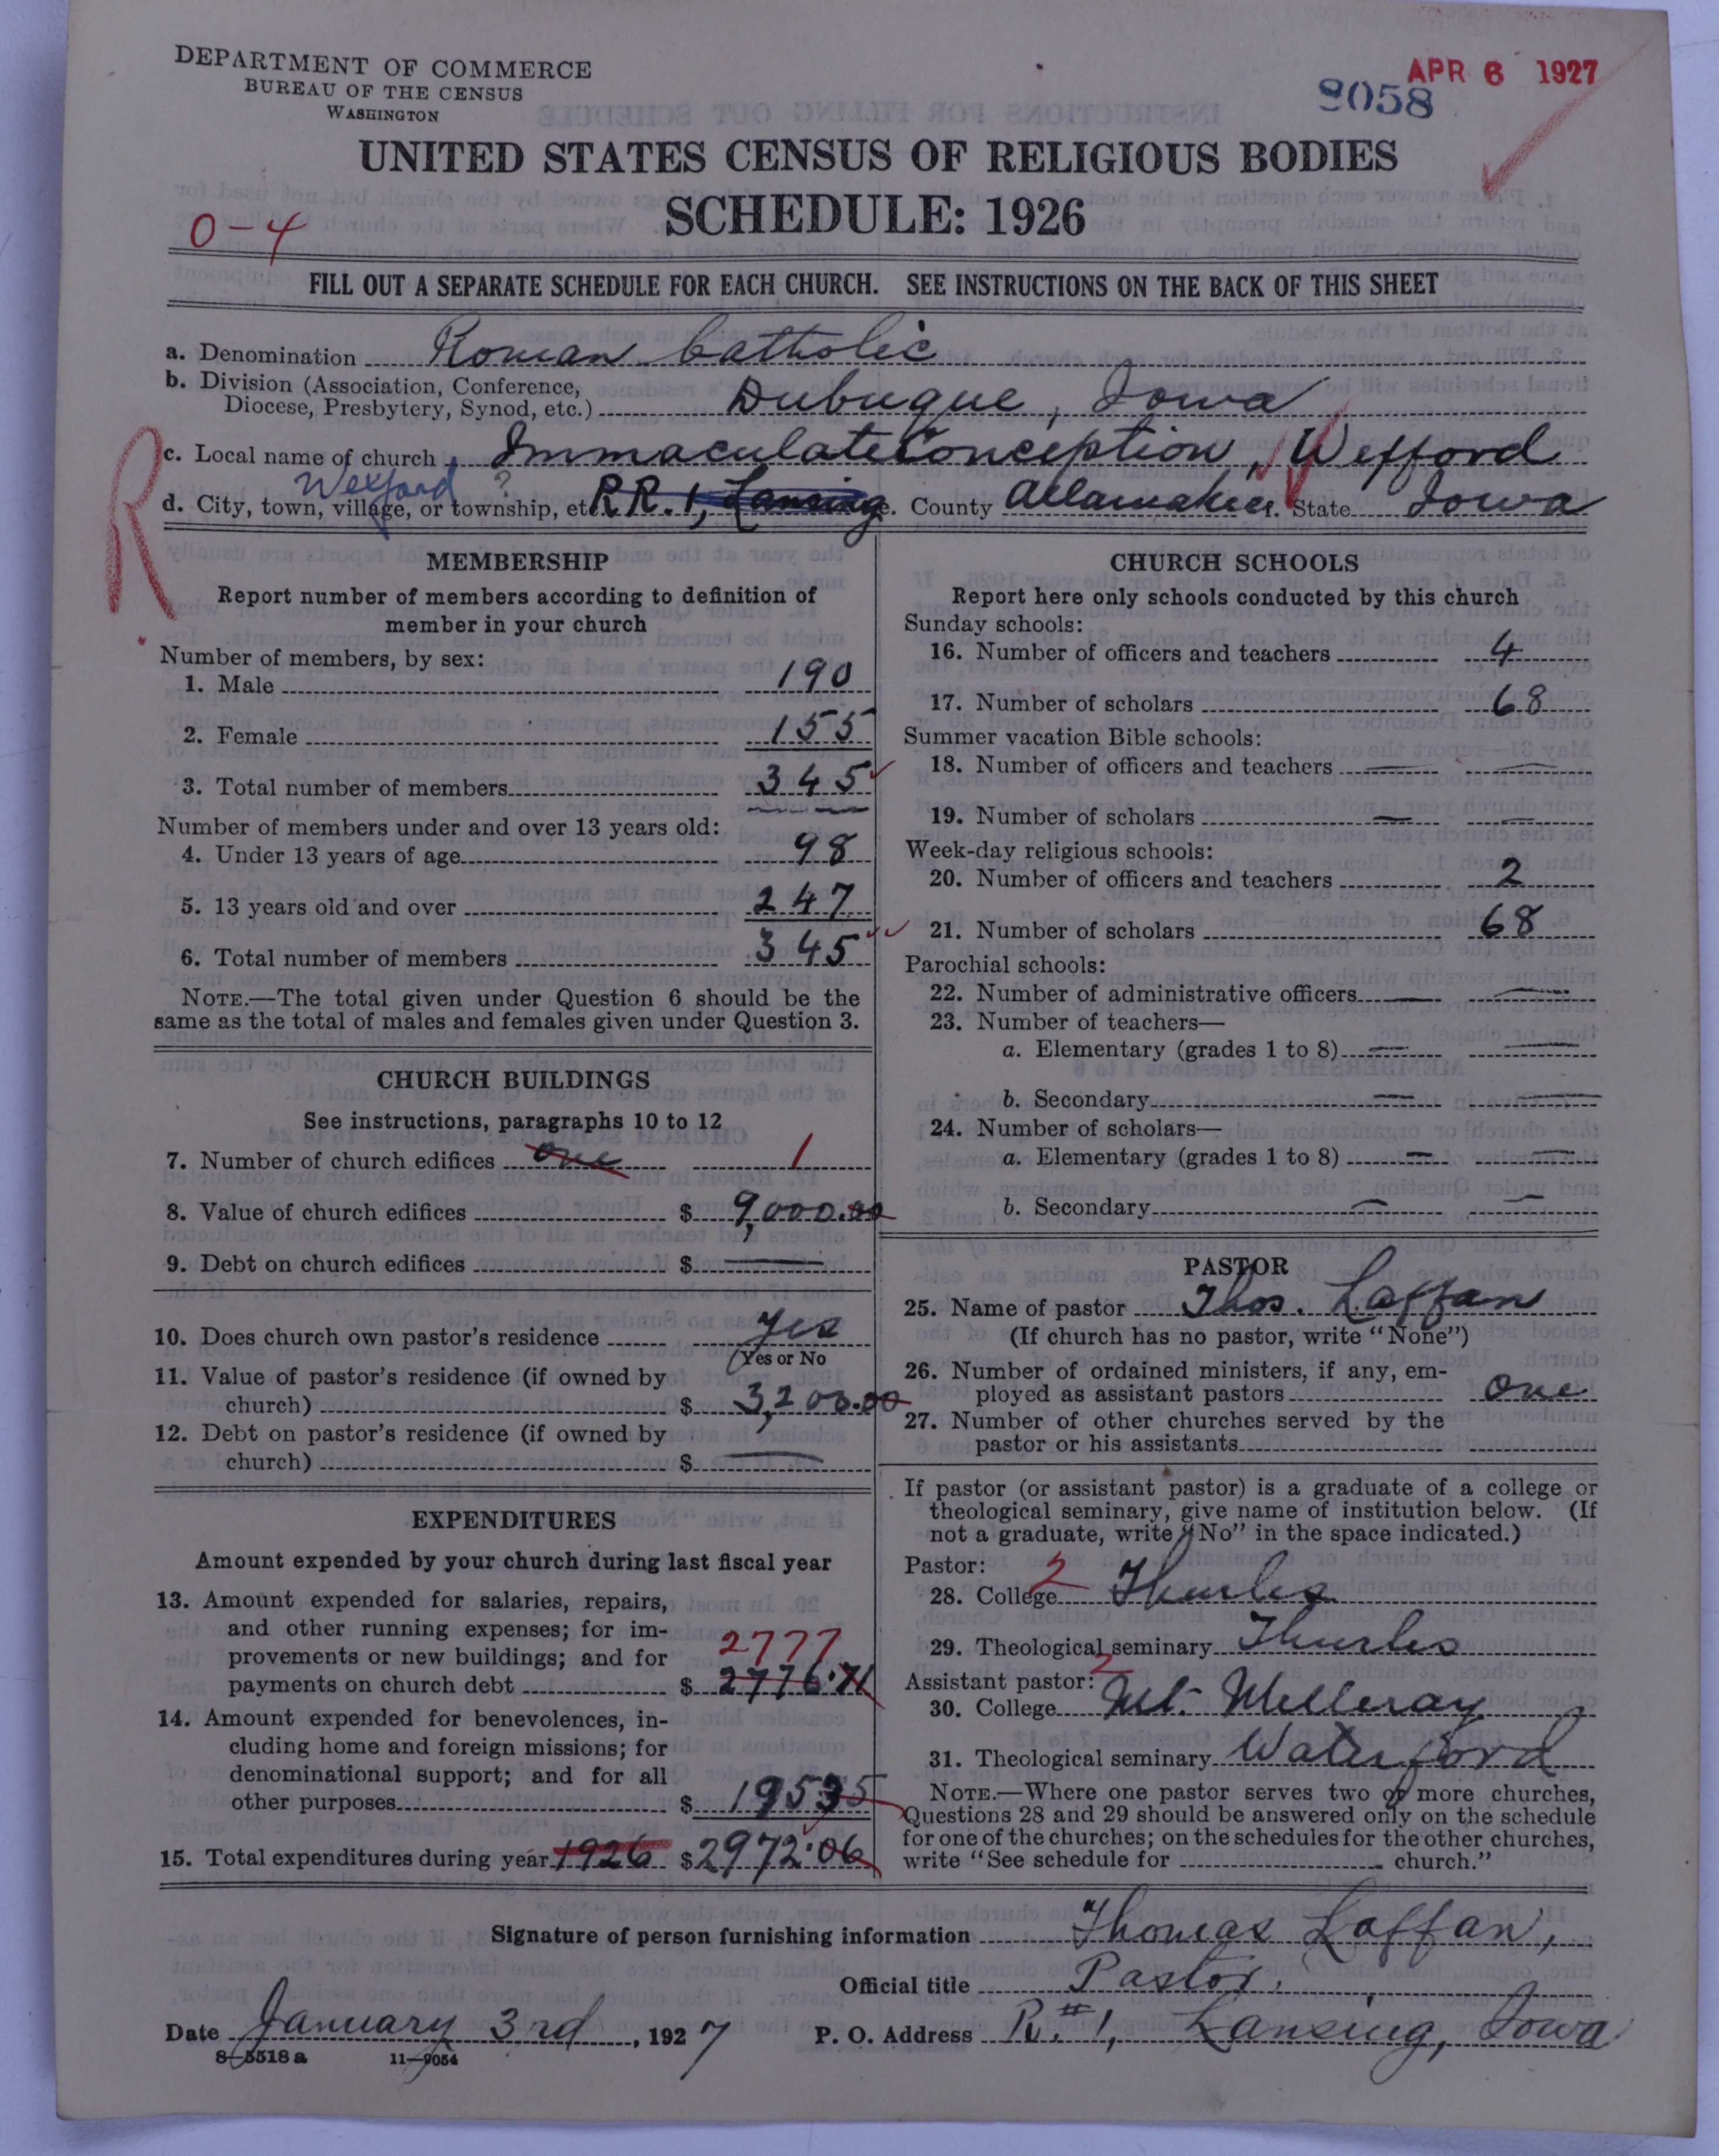 DEPARTMENT OF COMMERCE
BUREAU OF THE CENSUS
WASHINGTON
APR 6 1927
8058
UNITED STATES CENSUS OF RELIGIOUS BODIES
SCHEDULE: 1926
0-4
FILL OUT A SEPARATE SCHEDULE FOR EACH CHURCH. SEE INSTRUCTIONS ON THE BACK OF THIS SHEET
a. Denomination Roman Catholic
b. Division (Association, Conference, Diocese, Presbytery, Synod, etc.) Dubuque, Iowa
R
c. Local name of church Immaculate Conception, Wexford
Wexford ?
d. City, town, village, or township, etc. R.R. 1, Lansing. County Allamakee. State Iowa
MEMBERSHIP
Report number of members according to definition of
member in your church
Number of members, by sex:
1. Male 190
2. Female 155
3. Total number of members 345
Number of members under and over 13 years old:
4. Under 13 years of age 98
5. 13 years old and over 247
6. Total number of members 345
NOTE.—The total given under Question 6 should be the
same as the total of males and females given under Question 3.
CHURCH BUILDINGS
See instructions, paragraphs 10 to 12
7. Number of church edifices one 1
8. Value of church edifices $ 9,000.00
9. Debt on church edifices $ —
10. Does church own pastor's residence Yes
(Yes or No
11. Value of pastor's residence (if owned by
church) $ 3,200.00
12. Debt on pastor's residence (if owned by
church) $ —
EXPENDITURES
Amount expended by your church during last fiscal year
13. Amount expended for salaries, repairs,
and other running expenses; for im-
provements or new buildings; and for 2777
payments on church debt $ 2776.71
14. Amount expended for benevolences, in-
cluding home and foreign missions; for
denominational support; and for all
other purposes $ 195 35
15. Total expenditures during year 1926 $2972.06
CHURCH SCHOOLS
Report here only schools conducted by this church
Sunday schools:
16. Number of officers and teachers 4
17. Number of scholars 68
Summer vacation Bible schools:
18. Number of officers and teachers — —
19. Number of scholars — —
Week-day religious schools:
20. Number of officers and teachers 2
21. Number of scholars 68
Parochial schools:
22. Number of administrative officers — —
23. Number of teachers—
a. Elementary (grades 1 to 8) — —
b. Secondary — —
24. Number of scholars—
a. Elementary (grades 1 to 8) — —
b. Secondary — —
PASTOR
25. Name of pastor Thos. Laffan
(If church has no pastor, write "None")
26. Number of ordained ministers, if any, em-
ployed as assistant pastors one
27. Number of other churches served by the
pastor or his assistants
If pastor (or assistant pastor) is a graduate of a college or
theological seminary, give name of institution below. (If
not a graduate, write "No" in the space indicated.)
Pastor:
28. College 2 Thurles
29. Theological seminary Thurles
Assistant pastor: 2
30. College Mt. Melleray
31. Theological seminary Waterford
NOTE.—Where one pastor serves two or more churches,
Questions 28 and 29 should be answered only on the schedule
for one of the churches; on the schedules for the other churches,
write "See schedule for church."
Signature of person furnishing information Thomas Laffan,
Official title Pastor.
Date January 3rd, 1927 P. O. Address R. #1, Lansing, Iowa
8-5518 a 11-9054